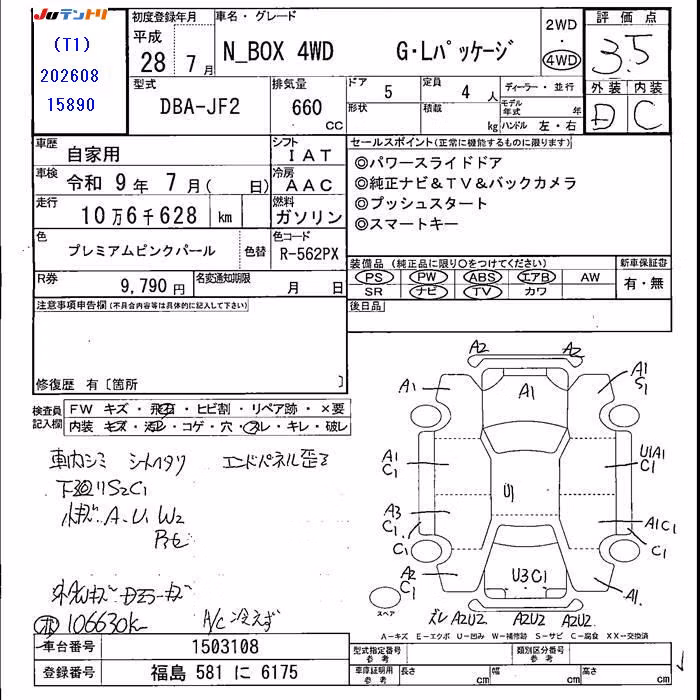 JUテントリ
(T1)
202608
15890
初度登録年月
平成 28 7月
車名・グレード
N_BOX 4WD G・Lパッケージ
2WD
・
4WD
評価点
3.5
外装 内装
D C
型式
DBA-JF2
排気量
660
CC
ドア
5
形状
定員
4人
積載
kg
ディーラー・並行
モデル年式 年
ハンドル 左・右
車歴
自家用
シフト
IAT
車検
令和 9年 7月( 日)
冷房
AAC
走行
10万6千628 km
燃料
ガソリン
色
プレミアムピンクパール
色替
色コード
R-562PX
R券
9,790円
名変通知期限
月 日
セールスポイント(正常に機能するものに限ります)
◎パワースライドドア
◎純正ナビ&TV&バックカメラ
◎プッシュスタート
◎スマートキー
装備品(純正品に限り○をつけてください)
PS PW ABS エアB AW
SR ナビ TV カワ
新車保証書
有・無
後日品
注意事項申告欄(不具合内容等は具体的に記入して下さい)
修復歴 有〔箇所 〕
検査員記入欄
FW キズ・飛石・ヒビ割・リペア跡・×要
内装 キズ・汚レ・コゲ・穴・スレ・キレ・破レ
車内シミ シートヘタリ エンドパネル歪ミ
下廻リS2C1
小キズ.A.U.W2
106630k
A/C冷えず
A2 A2
A1 A1 A1
S1
A1 U1A1
C1 C1
U1
A3 A1C1
C1
C1 C1
A2 U3C1 A1
C1
スペア
ズレ A2U2 A2U2 A2U2
A-キズ E-エクボ U-凹み W-補修跡 S-サビ C-腐食 XX-交換済
車台番号
1503108
登録番号
福島 581 に 6175
型式指定番号
参考
類別区分番号
参考
車庫証明用
参考
長さ cm
幅 cm
高さ cm